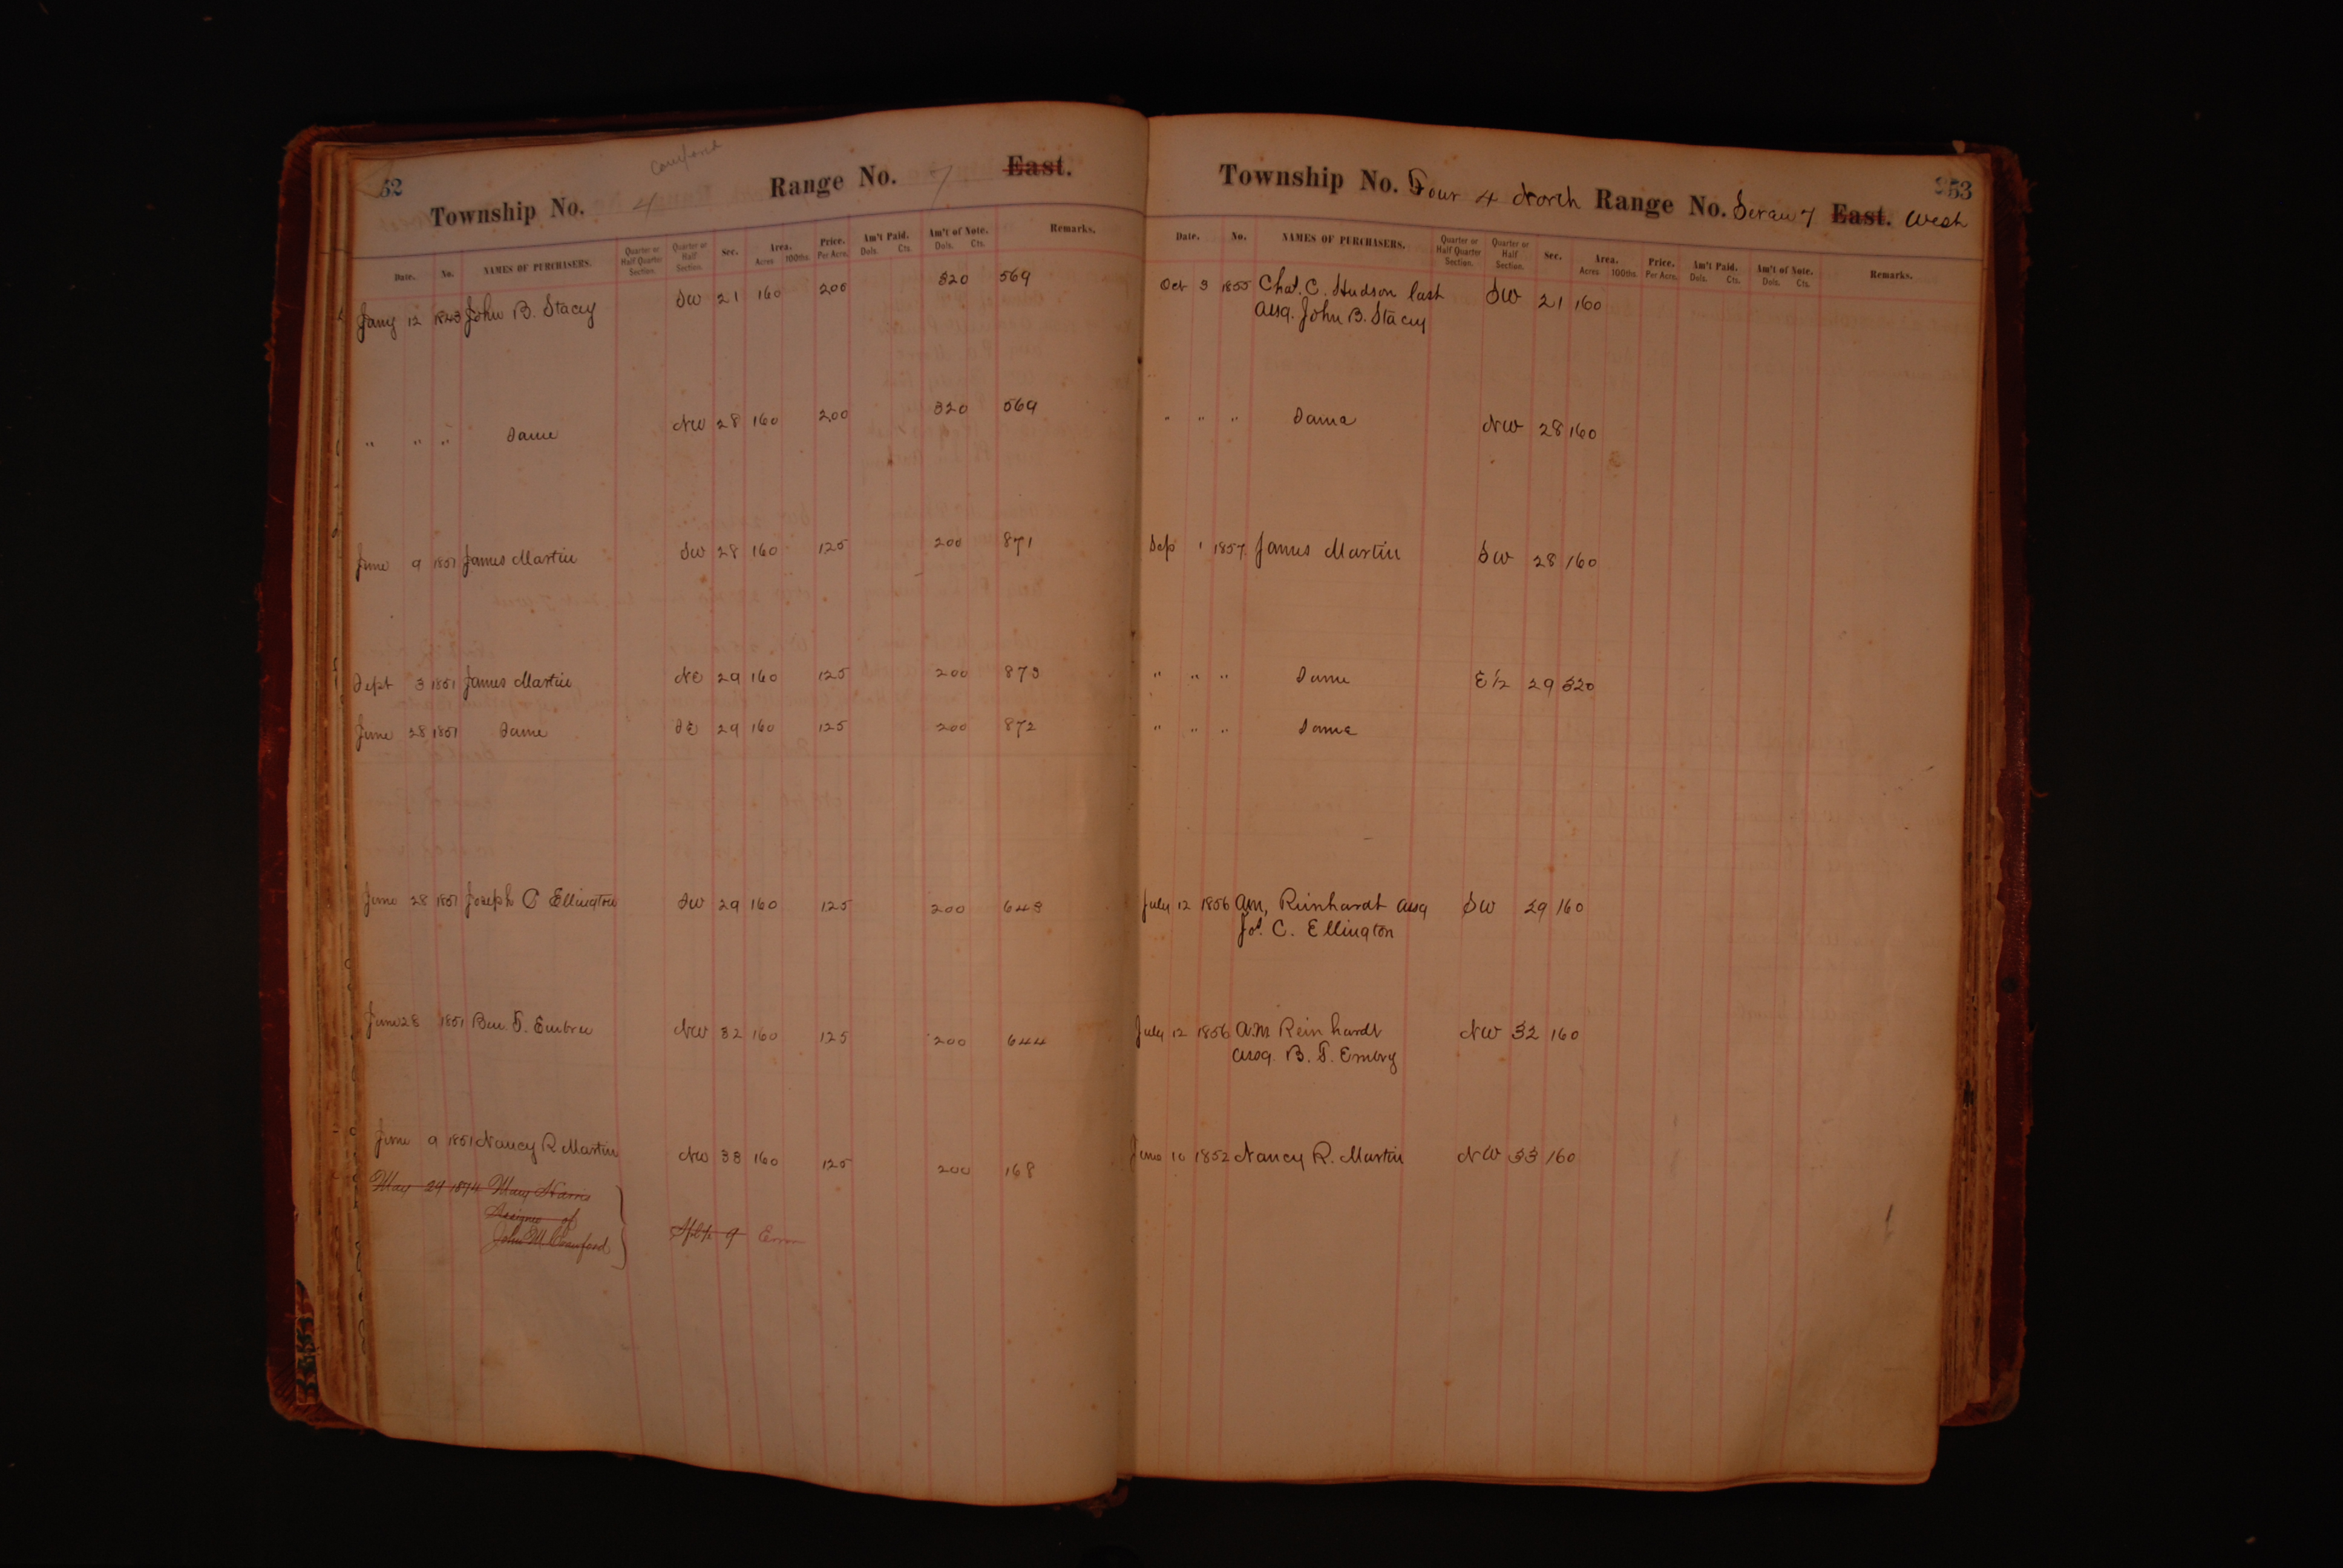 52
Township No. 4 Range No. 7 East.
Date. No. NAMES OF PURCHASERS. Quarter or Half Quarter Section. Quarter or Half Section. Sec. Area. Acres 100ths. Price. Per Acre. Am't Paid. Dols. Cts. Am't of Note. Dols. Cts. Remarks.
Jany 12 1843 John B. Stacey SW 21 160 200 320 569
" " " Same NW 28 160 200 320 569
June 9 1851 James Martin SW 28 160 125 200 871
Sept 3 1851 James Martin NE 29 160 125 200 873
June 28 1851 Same SE 29 160 125 200 872
June 28 1851 Joseph C Ellington SW 29 160 125 200 643
June 28 1851 Ben. T. Embree NW 32 160 125 200 644
June 9 1851 Nancy R. Martin NW 33 160 125 200 168
May 29 1874 Mary Harris
Assignee of
John M. Crawford
9 Error
253
Township No. Four 4 North Range No. Seven 7 East. West
Date. No. NAMES OF PURCHASERS. Quarter or Half Quarter Section. Quarter or Half Section. Sec. Area. Acres 100ths. Price. Per Acre. Am't Paid. Dols. Cts. Am't of Note. Dols. Cts. Remarks.
Oct 3 1855 Chas. C. Hudson last SW 21 160
assg. John B. Stacey
" " " Same NW 28 160
Sep 1 1857 James Martin SW 28 160
" " " Same E 1/2 29 320
" " " Same
July 12 1856 A.M. Reinhardt assg SW 29 160
Jos. C. Ellington
July 12 1856 A.M Reinhardt NW 32 160
assg. B. T. Embry
June 10 1852 Nancy R. Martin NW 33 160